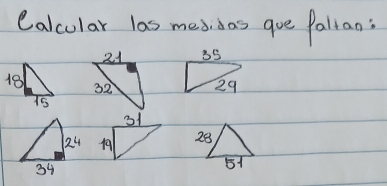 Calcular las medidas que faltan:
21 35
18 32 29
15
31
24 19 28
34 51